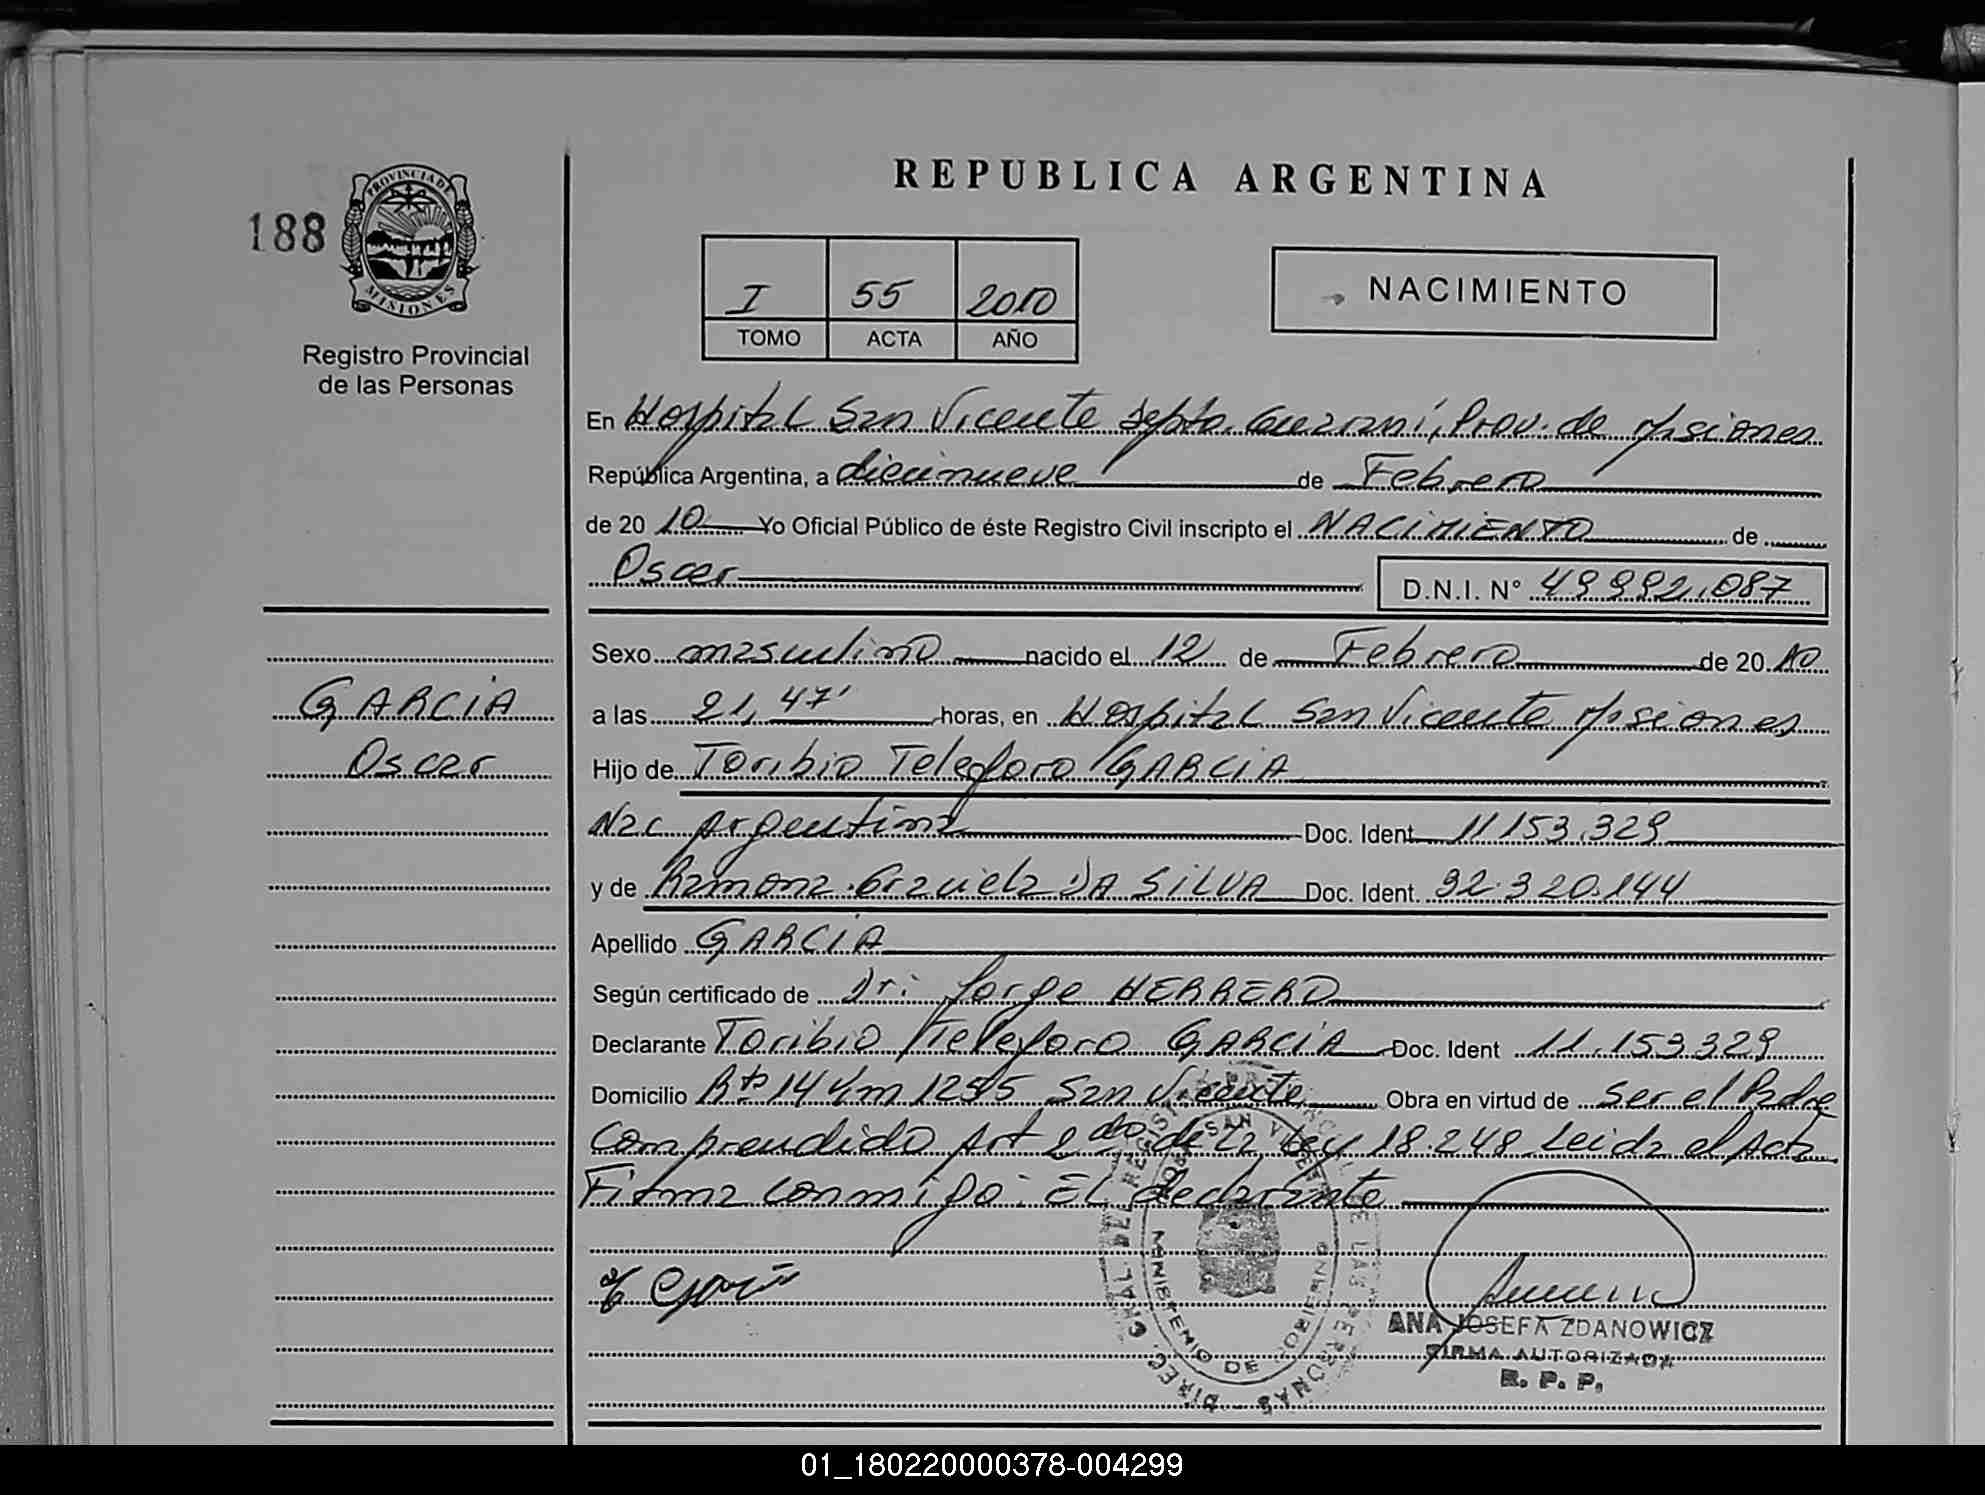 REPUBLICA ARGENTINA
188
PROVINCIA DE
MISIONES
Registro Provincial
de las Personas
I 55 2010
TOMO ACTA AÑO
NACIMIENTO
En Hospital San Vicente Depto. Guarani, Prov. de Misiones
República Argentina, a diecinueve de Febrero
de 20 10 Yo Oficial Público de éste Registro Civil inscripto el NACIMIENTO de
Oscar D.N.I. N° 49992.087
Sexo masculino nacido el 12 de Febrero de 20 10
GARCIA
a las 21,47' horas, en Hospital San Vicente Misiones
Oscar
Hijo de Toribio Telesforo GARCIA
Nac Argentina Doc. Ident 11153.329
y de Ramona Graciela DA SILVA Doc. Ident. 32.320.144
Apellido GARCIA
Según certificado de Dr: Jorge HERRERO
Declarante Toribio Telesforo GARCIA Doc. Ident 11.153.329
Domicilio Rta 14 Km 1255 San Vicente Obra en virtud de ser el Padre
Comprendido Art 2do de la Ley 18.248 Leida el Acta
Firma conmigo: El declarante
DIREC. GRAL. DEL REGISTRO PROVINCIAL DE LAS PERSONAS
SAN VICENTE
MINISTERIO DE GOBIERNO
ANA JOSEFA ZDANOWICZ
FIRMA AUTORIZADA
R. P. P.
01_180220000378-004299